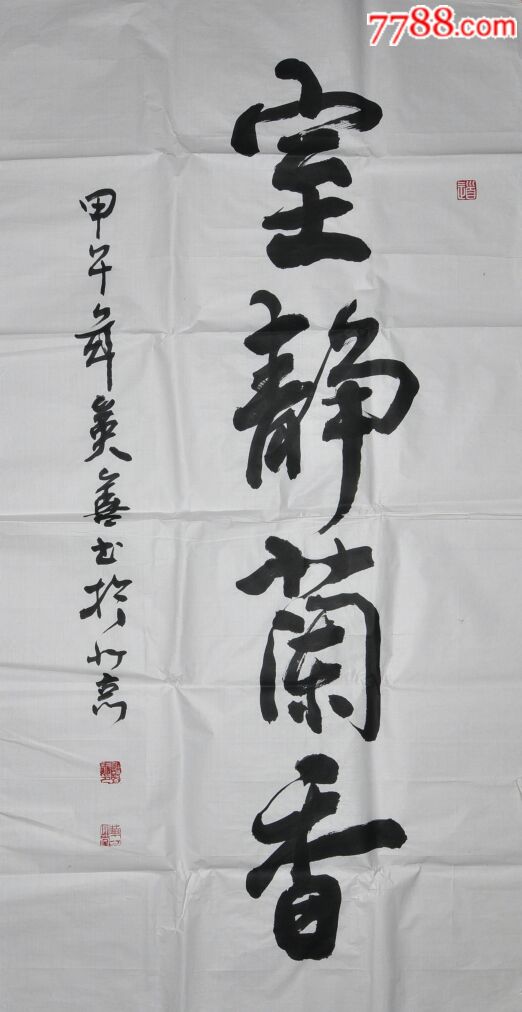 7788.com
室靜蘭香
甲午年英善书於北京